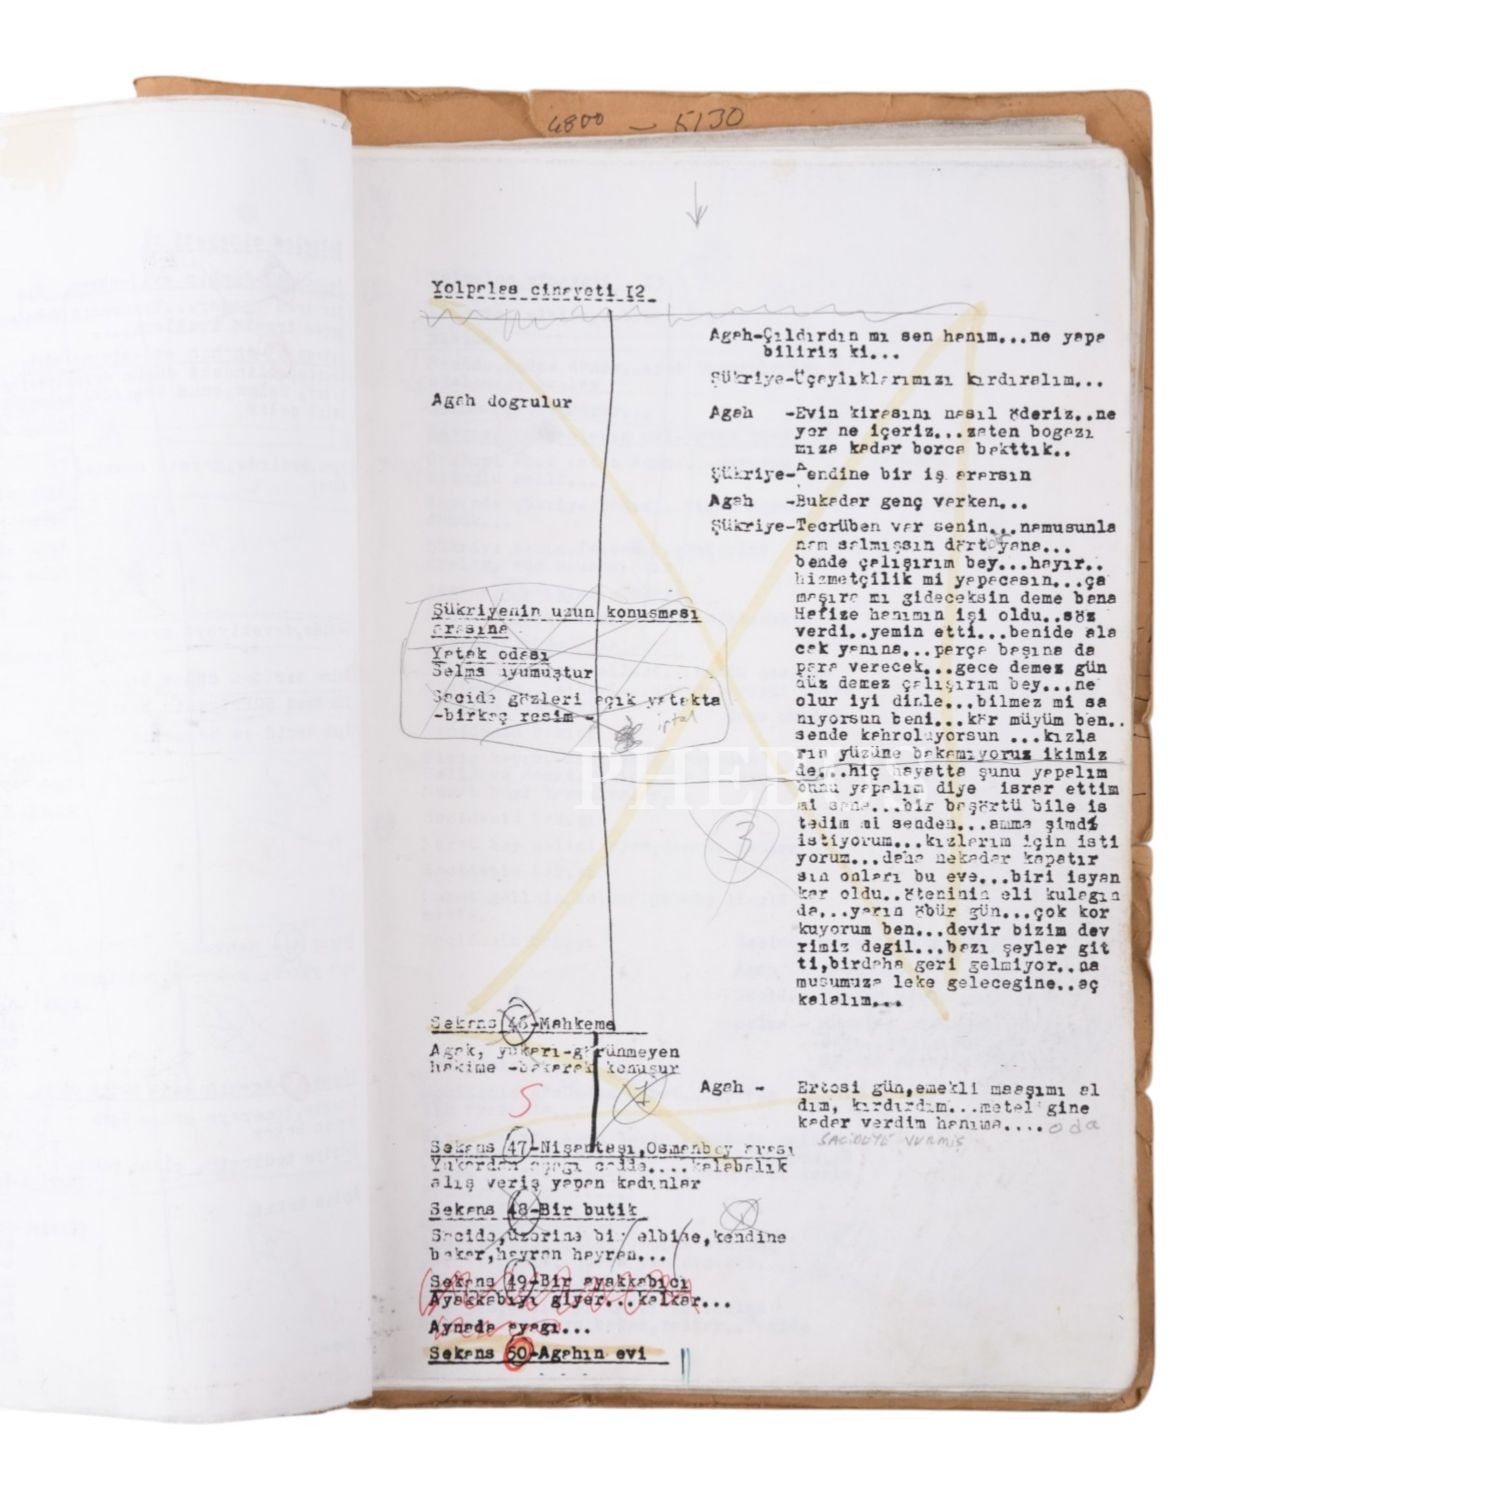 4800 – 5130
Yolpalas cinayeti 12
Agah-Çıldırdın mı sen hanım...ne yapa
biliriz ki...
Şükriye-Üçaylıklarımızı kırdıralım...
Agah doğrulur
Agah -Evin kirasını nasıl öderiz..ne
yer ne içeriz...zaten bogazı
mıza kadar borca bakttık..
Şükriye-Kendine bir iş ararsın
Agah -Bukadar genç varken...
Şükriye-Tecrüben var senin...namusunla
nam salmışsın dört yana...
bende çalışırım bey...hayır..
hizmetçilik mi yapacasın...ça
maşıra mı gideceksin deme bana
Hafize hanımın işi oldu..söz
verdi..yemin etti...benide ala
cak yanına...parça başına da
para verecek...gece demez gün
düz demez çalışırım bey...ne
olur iyi dinle...bilmez mi sa
nıyorsun beni...kör müyüm ben..
sende kahroluyorsun ...kızla
rın yüzüne bakamıyoruz ikimiz
de...hiç hayatta şunu yapalım
bunu yapalım diye israr ettim
mi sana...bir başörtü bile is
tedim mi senden...amma şimdi
istiyorum...kızlarım için isti
yorum...daha nekadar kapatır
sın onları bu eve...biri isyan
kar oldu..öteninin eli kulagın
da...yarın öbür gün...çok kor
kuyorum ben...devir bizim dev
rimiz degil...bazı şeyler git
ti,birdaha geri gelmiyor..na
musumuza leke gelecegine..aç
kalalım...
Şükriyenin uzun konusması
arasına
Yatak odası
Selma uyumuştur
Sacide gözleri açık yatakta
-birkaç resim -
iptal
PHEBUS
3
Sekans 46-Mahkeme
Agah, yukarı-görünmeyen
hakime -bakarak konuşur
S
1
Agah - Ertesi gün,emekli maaşımı al
dım, kırdırdım...meteligine
kadar verdim hanıma.... oda
SACİDEYE VERMİŞ
Sekans 47-Nişantaşı,Osmanbey arası
Yukardan aşagı cadde....kalabalık
alış veriş yapan kadınlar
Sekans 48-Bir butik
Sacide,üzerine bir elbise,kendine
bakar,hayran hayran...
Sekans 49-Bir ayakkabıcı
Ayakkabıyı giyer...kalkar...
Aynada ayagı...
Sekans 50-Agahın evi